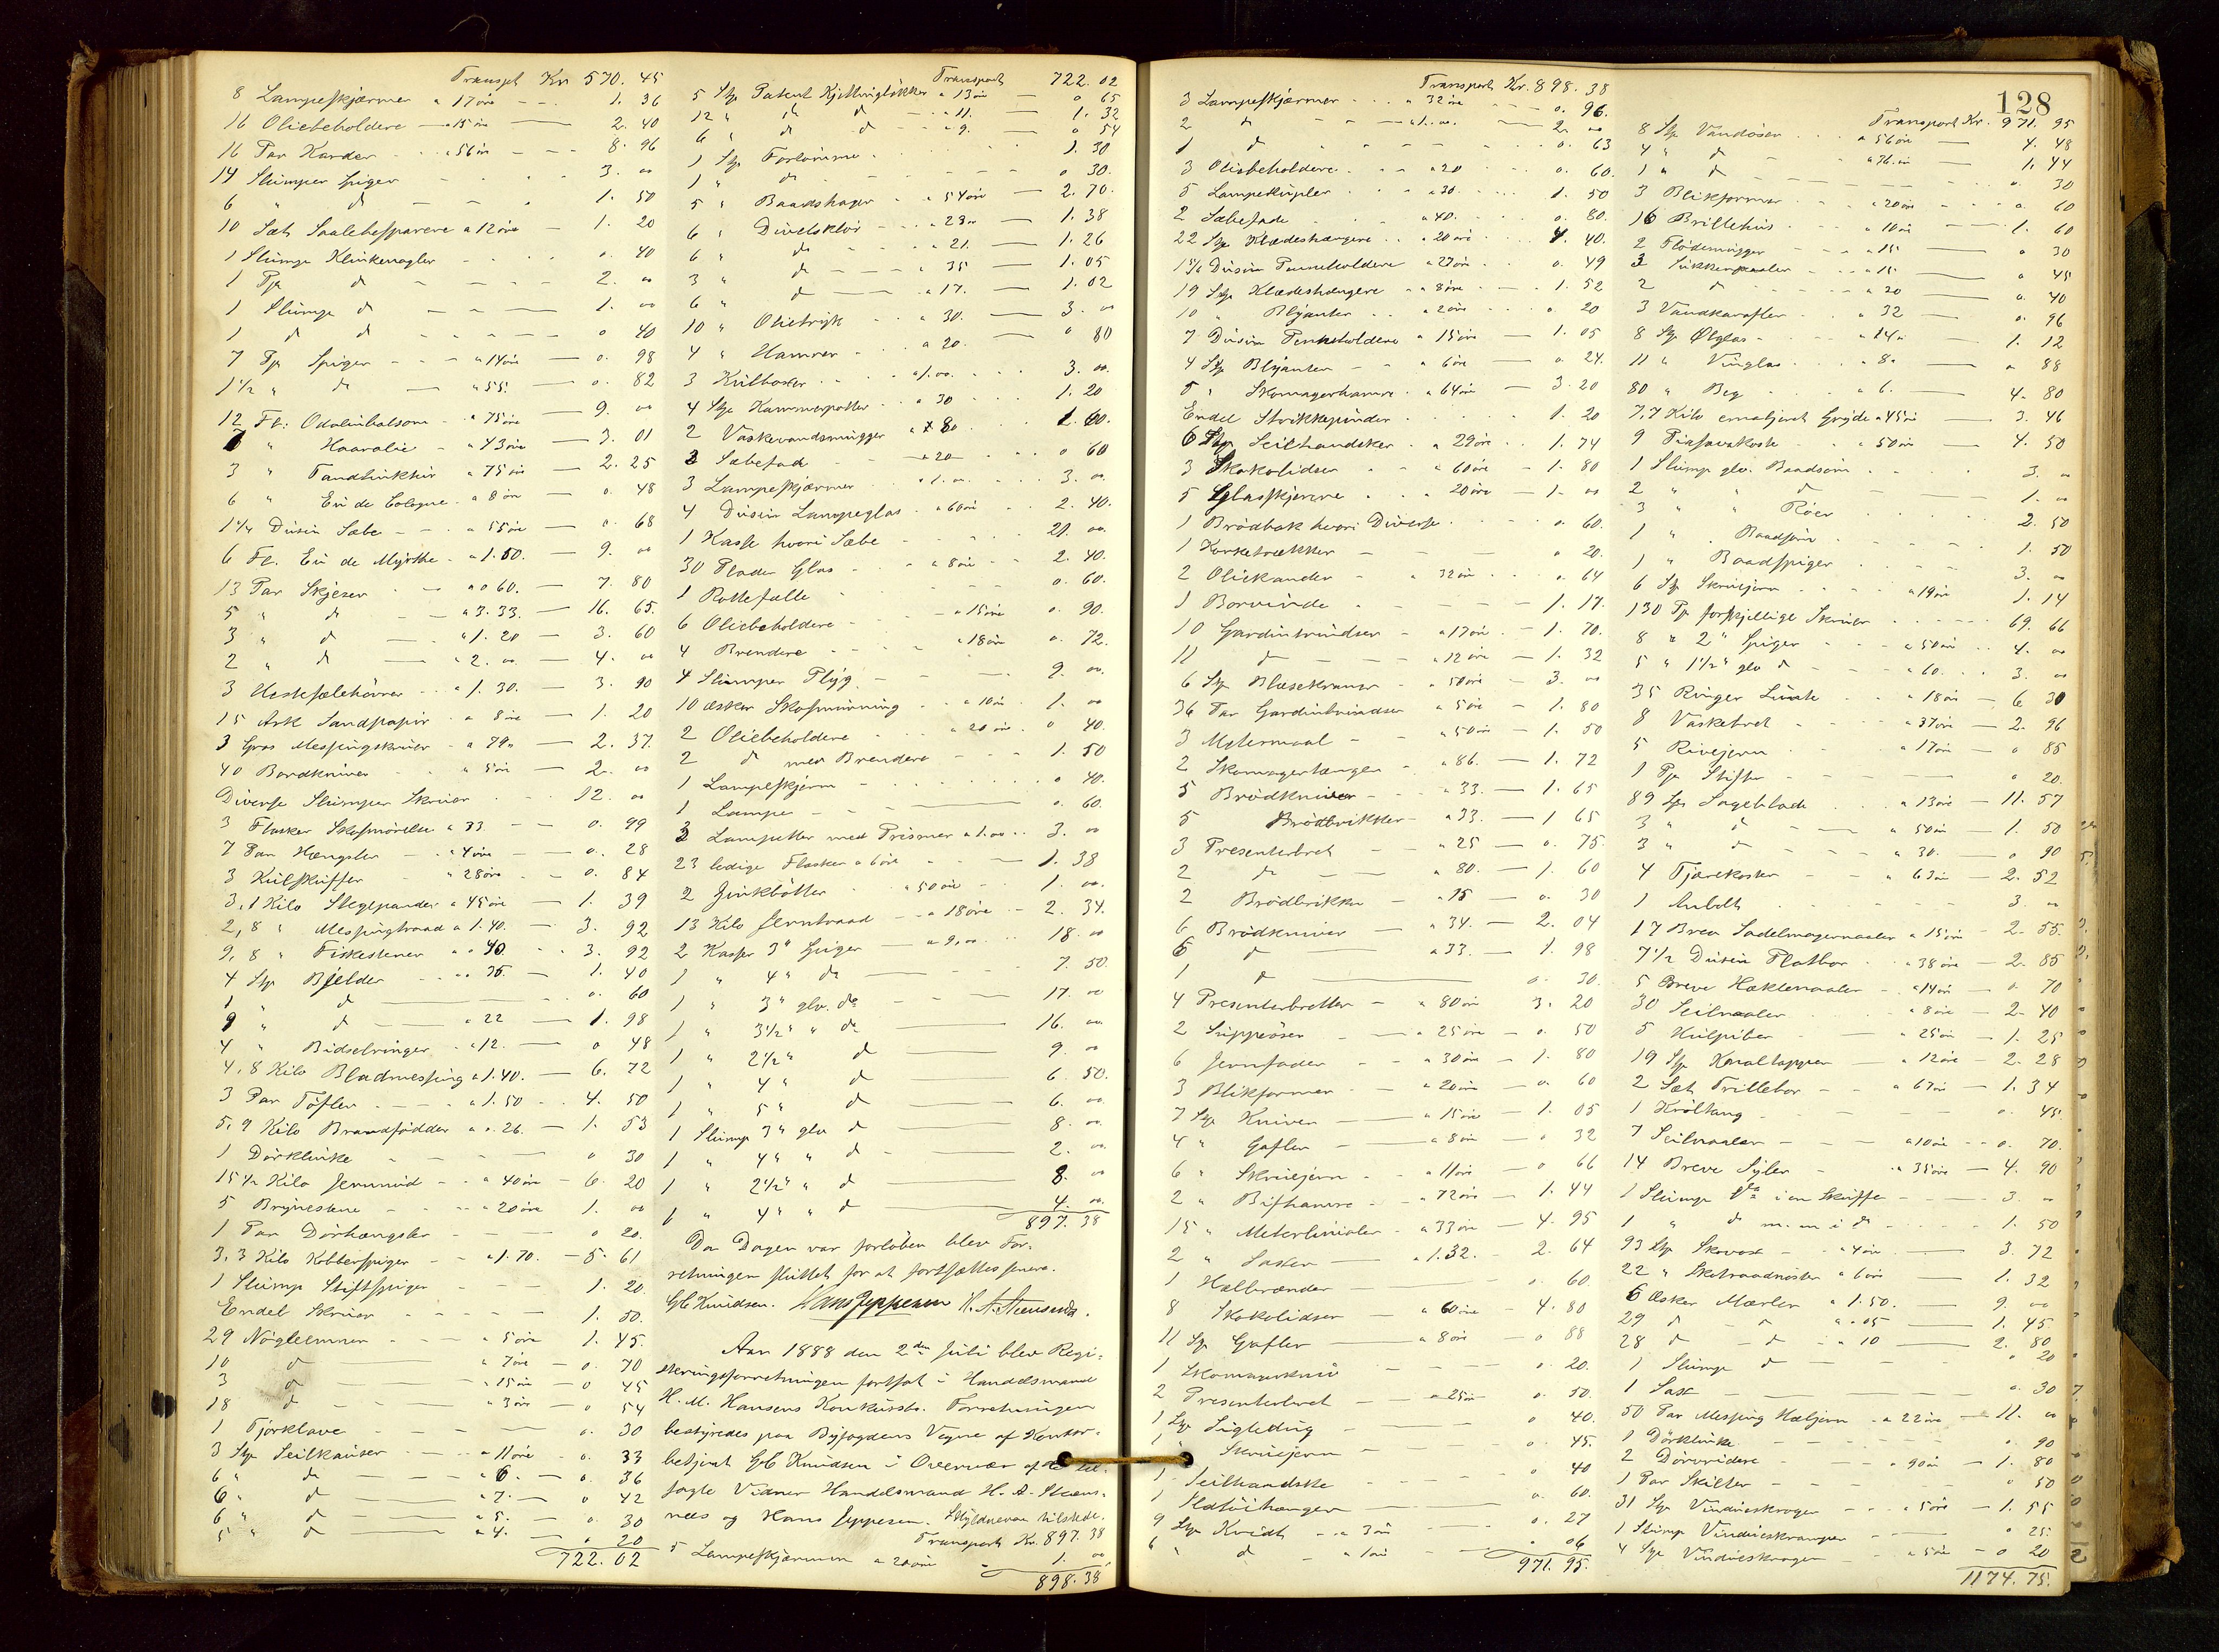 Transpt Kr 570. 45
8 Lampeskjærmer a 17 öre - - 1. 36
16 Oliebeholdere - a 15 öre — 2. 40
16 Par Karder - - a 56 öre - - 8. 96
14 Slumper Spiger - - - 3. 00
6 " d - - - 1. 50
10 Sæt Saalebesparere a 12 öre - 1. 20
1 Slump Klinkenagler - - - 0. 40
1 Pk d - - - 2. 00
1 Slump d - - - 1. 00
1 d d - - - 0 40
7 Pk Spiger - - a 14 öre — 0. 98
1 1/2 " d — a 55. — 0. 82
12 Fl: Odolinbalsom - a 75 öre — 9. 00
7 " Haarolie - a 43 öre — 3. 01
3 " Tandtinktur - a 75 öre — 2. 25
6 " Eu de Cologne - a 8 öre — 0. 48
1 1/4 Dusin Sæbe - - a 55 öre — 0. 68
6 Fl. Eu de Myrthe - a 1.50. — 9. 00
13 Par Skjeser - a 0 60. — 7. 80
5 " d - a 3. 33. — 16. 65.
3 " d — a 1. 20 — 3. 60
2 " d — a 2. 00 — 4. 00
3 - a 1. 30. — 3. 90
15 Ark Sandpapir - a 8 öre — 1. 20
3 Gros Messingskruer - a 79" — 2. 37.
40 Bordkniver - a 5 öre — 2. 00
Diverse Slumper Skruer - - 12. 00
3 Flasker Skosmörelse a 33 - - 0. 99
7 Par Hængsler - a 4 öre — 0. 28
3 Kulskuffer - a 28 öre - - 0. 84
3,1 Kilo Stegepander a 45 öre — 1. 39
2,8 " Messingtraad a 1.40. — 3. 92
9,8 " Fiskestener a 0 40. - - 3. 92
4 Stk Bjelder - - a 35. — 1. 40
1 " d — 0. 60
9 " d — a 22 — 1. 98
4 " Bidselringer - a 12. — 0 48
4,8 Kilo Bladmessing a 1.40. — 6. 72
3 Par Töfler - - - a 1.50 - - 4. 50
5,9 Kilo Brandfödder a 0. 26. — 1. 53
1 Dörklinke - - - 0 30
15 1/2 Kilo Jernvid - - a 40 öre — 6. 20
5 Brynestene - - - a 20 öre 1. 00
1 Par Dörhængsler - - 0 20.
3,3 Kilo Kobberspiger - a 1. 70. — 5. 61
1 Slump Stiftspiger - - 1. 20.
Endel Skruer - - - - 1. 50.
29 Nögleemner - - - a 5 öre 1. 45.
10 d — a 7 öre — 0. 70
3 d — a 15 öre — 0 45
18 d - - - a 3 öre — 0 54
1 Tjorklave - - - 0. 30
3 Stk Seilkauser - - a 11 öre - 0. 33
6 " d — a 6. — 0. 36
6 " d — a 7. — 0 42
6 " d — a 5. — 0. 30
5 " d — a 4. — 0 20
722. 02
Transport 722. 02
5 Stk Patent Kjettinglökker a 13 öre — 0 65
12 " d d - a 11. — 1. 32
6 " d d - a 9. — 0 54
1 Stk Fortömme - - - 1. 30
1 " d - - - 0 30.
5 " Baadshager - a 54 öre — 2. 70.
6 " Divelsklör - - a 23" — 1. 38
6 " d - - a 21. — 1. 26
3 " d - - a 35 — 1. 05
6 " d — a 17. — 1. 02
10 " Olietryk - - a 30. — 3. 00
4 " Hamrer - - a 20. - — 0 80
3 Kulbokser - - a 1.00. - - 3. 00.
4 Stk Kammerpotter - a 30 - - 1. 20
2 Vaskevandsmugger a 80 - 1. 60.
3 Sæbefad - a 20 - 0 60
3 Lampeskjærmer - a 1. 00. - 3. 00
4 Dusin Lampeglas - a 60 öre - 2. 40.
1 Kasse hvori Sæbe - - 21. 00.
30 Plader Glas - - a 8 öre - - 2. 40.
1 Rottefælle - - 0. 60.
6 Oliebeholdere - - a 15 öre 0. 90.
4 Brendere - - a 18 öre 0. 72.
4 Slumper Plyg - - 9. 00.
10 æsker Skosmurning - a 10 öre - 1. 00
2 Oliebeholdere - a 20 öre - 0 40.
2 d med Brendere - - 1. 50
1 Lampeskjerm - - - 0 40.
1 Lampe - - - 0. 60
3 Lampetter med Prismer a 1.00 - 3. 00
23 ledige Flasker a 6 öre - — 1. 38
2 Zinkbötter - a 50 öre - - 1. 00.
13 Kilo Jerntraad - - a 18 öre - - 2. 34.
2 Kasser 3" Spiger — a 9,00 - - 18. 00
1 " 4" do — 7. 50.
1 " 3" glv. do - - 17. 00
1 " 3 1/2" " do — 16. 00.
1 " 2 1/2" d — 9. 00
1 " 4" d — 6. 50.
1 " 5" d — 6. 00
1 Slump 3" glv d — 8. 00.
1 " 4" " d — 2. 00.
1 " 2 1/2" " d — 8. 00
1 " 4" " d — 4. 00.
897. 38
Da Dagen var forløben blev For-
retningen sluttet for at fortsættes senere.
GC Knudsen. Hans Jeppesen H. A. Steensnæs.
Aar 1888 den 2den Juli blev Regi-
streringsforretningen fortsat i Handelsmand
H. M. Hansens Konkursbo. Forretningen
bestyredes paa Byfogdens Vegne af Kontor-
betjent GC Knudsen i Overvær af de til-
sagte Vidner Handelsmand H. A. Steens-
næs og Hans Jeppesen. Skyldneren tilstede.
Transport Kr. 897. 38
5 Lampeskjærmer a 20 öre - 1. 00
898. 38
Transport Kr. 898. 38
3 Lampeskjærmer - - - a 32 öre - - 0. 96.
2 d - - - a 1.00. — 2. 00
1 d - - - - 0. 63
3 Oliebeholdere - - a 20 - - 0. 60.
5 Lampekupler - - a 30. - - - 1. 50
2 Sæbefade - - a 40. - - 0. 80.
22 Stk Klædeshængere - - a 20 öre - - 4. 40.
1 3/4 Dusin Penneholdere a 27 öre - - 0. 49
19 Stk Klædeshængere - a 8 öre - - 1. 52
10 " Blyanter - - a 2 öre - - 0. 20
7 Dusin Penneholdere a 15 öre — 1. 05
4 Stk Blyanter - - a 6 öre — 0. 24.
5 " Skomagerhamre - a 64 öre — 3. 20
Endel Strikkepinder - - - 1. 20
6 Stk Seilhandsker - a 29 öre - - 1. 74
3 - - a 60 öre - 1. 80
5 Glasskjerme - - a 20 öre — 1. 00
1 Brödbak hvori Diverse - - 0. 60.
1 Korketrækker - - - 0 20.
2 Oliekander - a 32 öre - - 0. 64
1 Borvinde - - - - 1. 17.
10 Gardintrindser - a 17 öre - 1. 70.
11 d - - a 12 öre — 1. 32
6 Stk Blæsekranse - a 50 öre — 3. 00
36 Par Gardintrindser a 5 öre — 1. 80
3 Metermaal - - a 50 öre — 1. 50
2 Skomagertænger - a 86. — 1. 72
5 Brödkniver - - a 33. — 1. 65
5 Brödbrikker - a 33. — 1 65
3 Presenterbret - - a 25 - 0. 75.
2 d - - a 80. — 1. 60
2 Brödbrikker - a 15 - 0. 30
6 Brödkniver — a 34. — 2. 04
6 d — a 33. — 1. 98
1 d — 0. 30.
4 Presenterbretter - a 80 öre 3. 20
2 Suppeöser — a 25 öre - 0. 50
6 Jernfader - - a 30 öre — 1. 80
3 Blikformer - - a 20 öre - 0. 60
7 Stk Kniver — a 15 öre — 1. 05
4 " Gafler — a 8 öre — 0 32
6 " Skruejern - - a 11 öre — 0 66
2 " Bifhamre - - a 72 öre — 1. 44
15 " Meterlinialer - a 33 öre — 4. 95
2 " Saxer — a 1. 32. - 2. 64
1 — 0. 60.
8 — a 60 öre - 4. 80
11 Stk Gafler — a 8 öre — 0 88
1 Skomagerkniv - - - 0. 20.
2 Presenterbret — a 25 öre 0. 50.
1 — 0 40.
1 " Skruejern — 0. 45.
1 Seilhandske - - 0 40
1 — 0. 60.
9 Stk - - a 3 öre — 0. 27
6 " d - a 1 öre — 0 06
971. 95.
128
Transport Kr. 971. 95
8 Stk Vandöser - - - a 56 öre — 4. 48
4 " d - a 36 öre — 1. 44
1 " d — 0. 30
3 Blikformer - - a 20 öre — 0. 60
16 Brillehus - - a 10 öre — 1. 60
2 Flödemugger - - a 15 — 0 30
3 Sukkerskaaler - - a 15 — 0 45
2 d - - a 20 — 0. 40
3 Vandkarafler - - a 32 — 0. 96
8 Stk Ølglas - - - a 14" — 1. 12
11 " Vinglas - - - a 8" — 0 88
80 " Beg - - a 6. — 4. 80
7,7 Kilo emaljeret Gryde a 45 öre — 3. 46
9 Piasavakoste - - a 50 öre — 4. 50
1 Slump glv. Baadsöm - - - 3. 00
2 " " d - - 1. 00
3 " " Röer - - 2. 50
1 " Baadsöm - - - 1. 50
1 " Baadspiger - - - 3. 00
6 Stk Skruejern - - a 19 öre 1. 14
130 Pk forskjellige Skruer - - - 69. 66
8 " 2" Spiger - - a 50 öre - - 4. 00
5 " 1 1/2" glv d - - - a 60. - - 3. 00
35 Ringer Lunte - - a 18 öre — 6 30
8 Vaskebret - - - a 37 öre - 2. 96
5 Rivejern - - - a 17 öre — 0 85
1 Pk Stifter - - - 0 20.
89 Stk Sageblade - - a 13 öre — 11. 57
3 " d - - a 50 öre — 1. 50
3 " d - - a 30. — 0 90
4 Tjærekoster - - a 63 öre — 2. 52
1 Ambolt - - - 3. 00
17 Breve Sadelmagernaaler a 15 öre - 2. 55.
7 1/2 Dusin Flatbor - - a 38 öre — 2. 85
5 Breve Hæklenaaler - - a 14 öre - 0. 70
30 Seilnaaler - - a 8 öre — 2. 40
5 Hulpiber - - a 25 öre — 1. 25
19 Stk Kraaltapper — a 12 öre — 2. 28
2 Sæt Trillebor - - a 67 öre — 1. 34
1 Kröltang - - - 0. 45.
7 Seilnaaler - - - a 10 öre - - 0. 70.
14 Breve Syler - - a 35 öre — 4. 90
1 Slump do i en Skuffe - - - 3. 00
1 " d m. m i do - - - 1. 50
93 Stk - - a 4 öre — 3. 72
22 " Skotraadnöster a 6 öre — 1. 32
6 Æsker Mærler a 1.50. — 9. 00
29 d - a 0. 05 — 1. 45
28 d - d - a 10 — 2. 80
1 Slump d - - - 0 20
1 Sax - - - 0. 30
50 Par Messing Hæljern - a 22 öre — 11. 00
1 Dörklinke - - - 0. 90
2 Dörvridere - - a 90 öre — 1. 80
1 Par Skilter - - - 0 50
31 Stk Vindueskroger - - a 5 öre — 1. 55
1 Slump Vindueskramper - - 0 25.
4 Stk Vindueskroger - a 5 öre — 0 20
1174. 75.